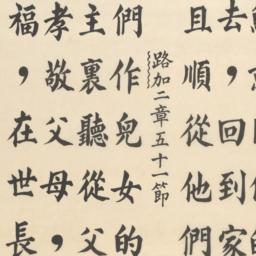 去，回到家
且順從他們
路加二章五十一節
們作兒女的
主裏聽從父
孝敬父母，
福，在世長